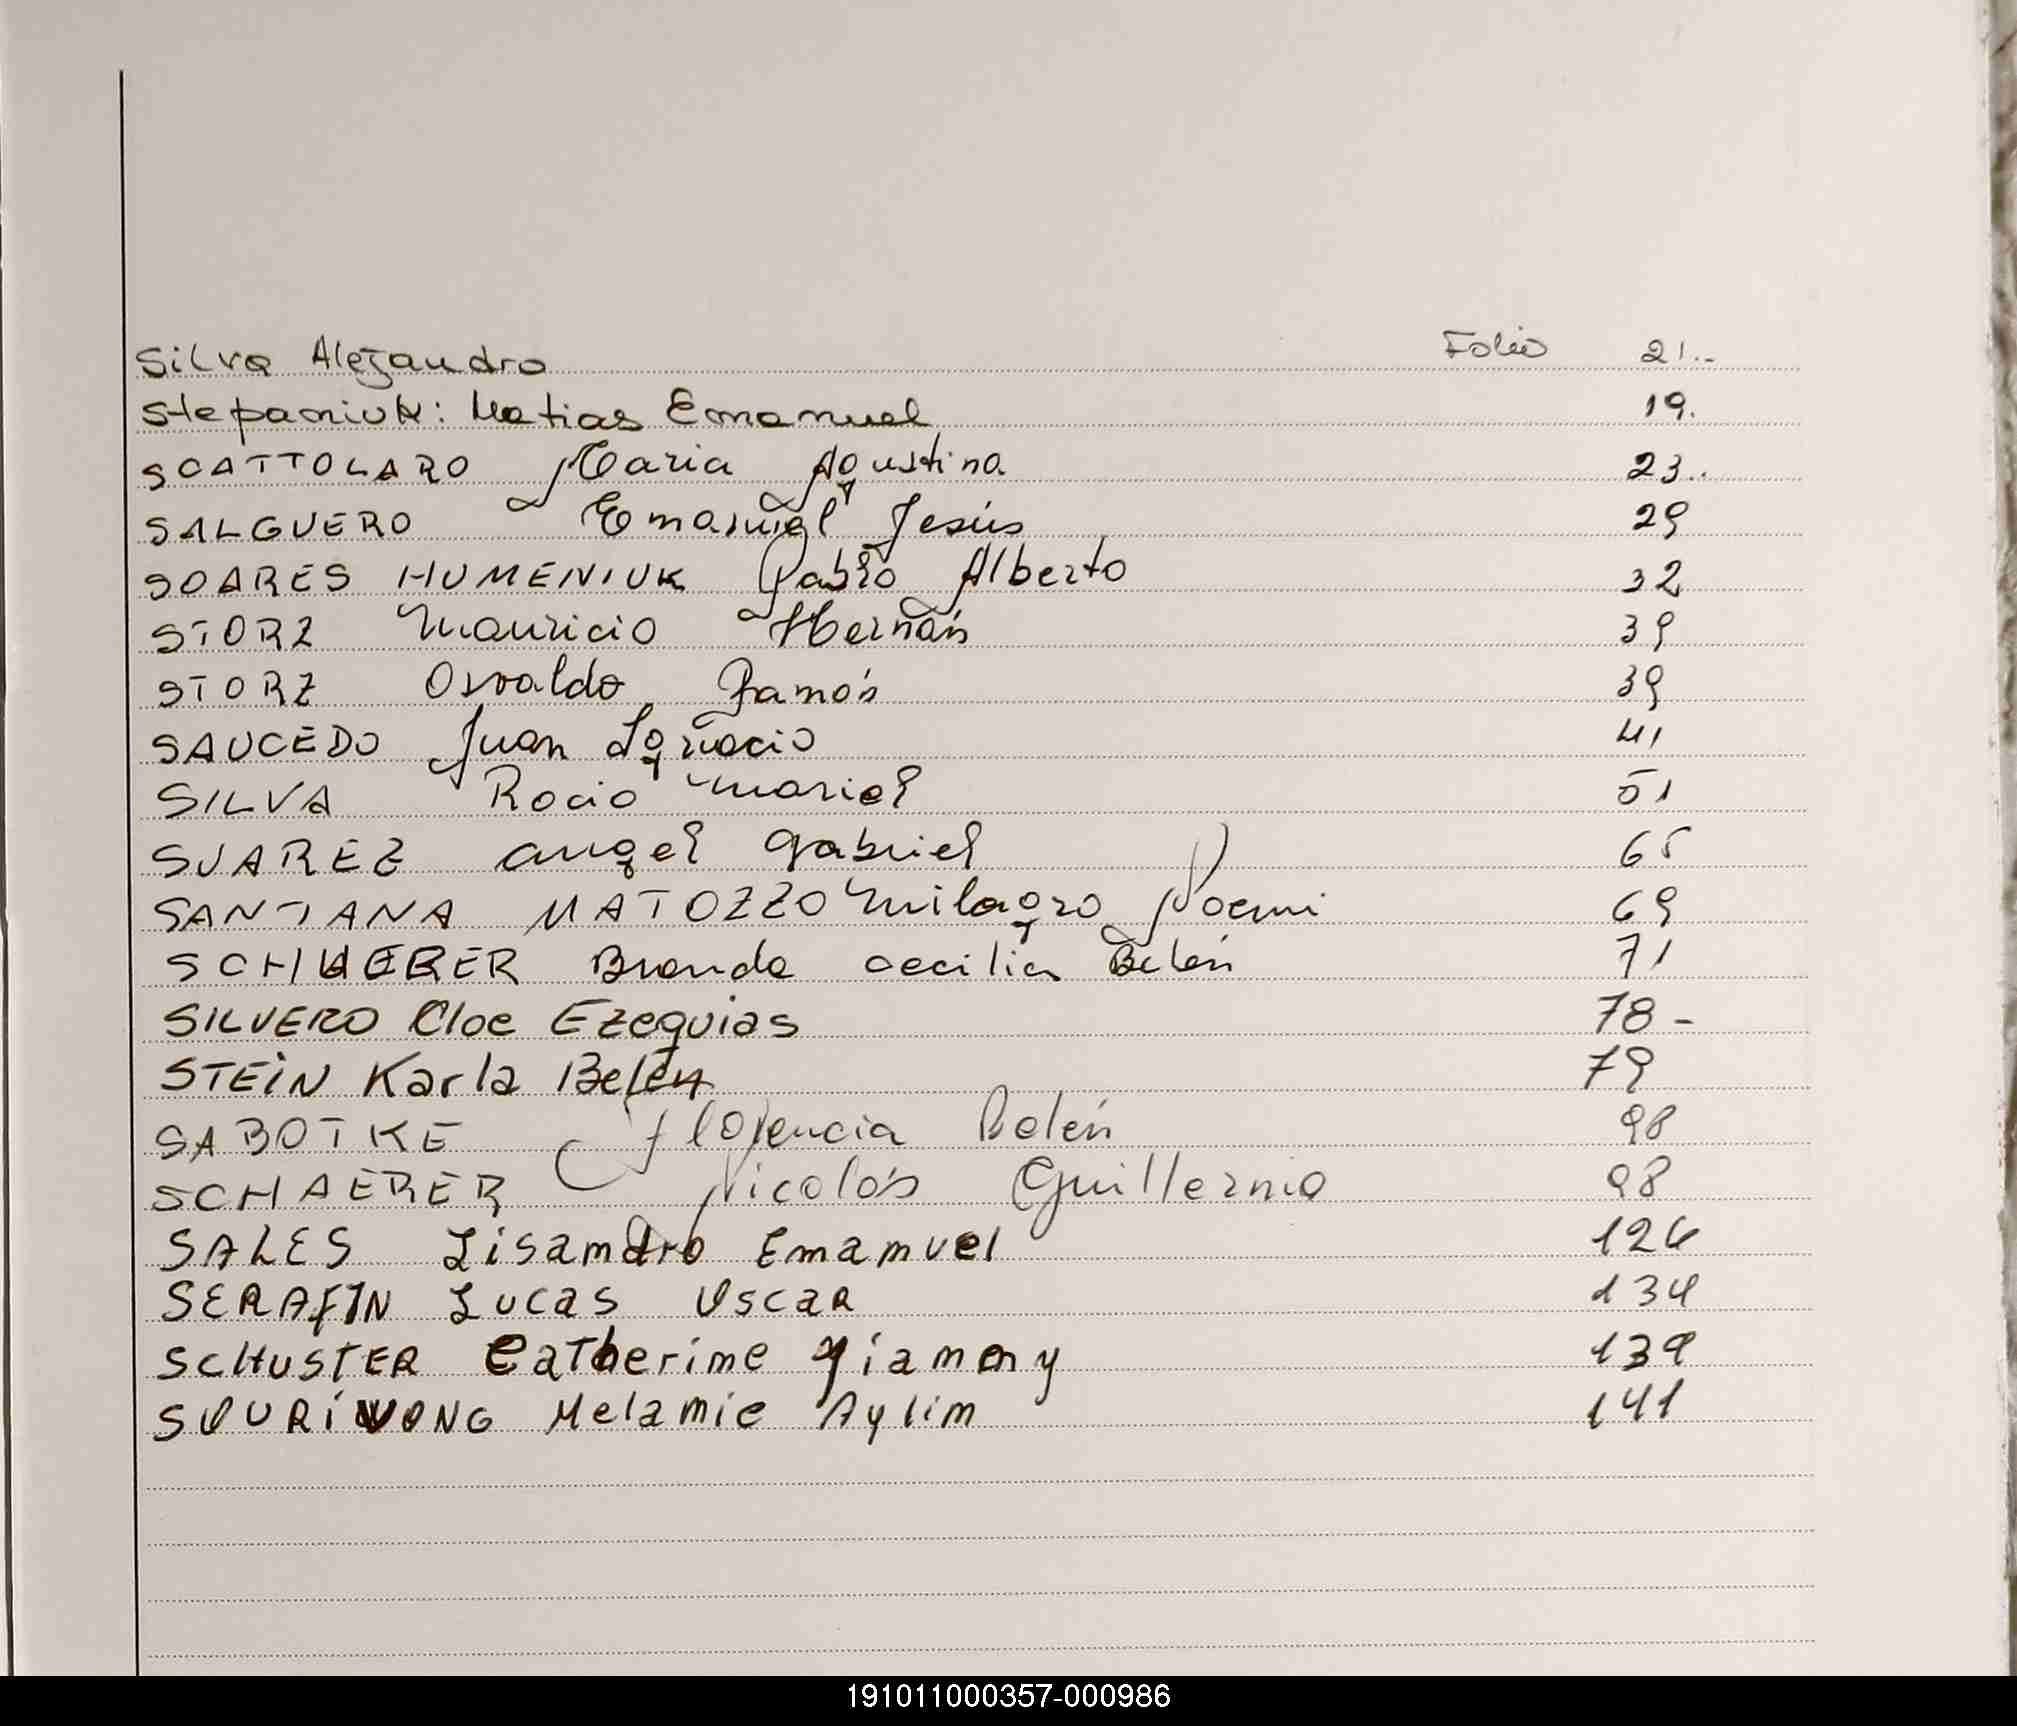 Silva Alejandro Folio 21.-
Stepaniuk: Matias Emanuel 19.
SCATTOLARO Maria Agustina 23..
SALGUERO Emanuel Jesús 29
SOARES HUMENIUK Pablo Alberto 32
STORZ Mauricio Hernán 39
STORZ Osvaldo Ramón 39
SAUCEDO Juan Ignacio 41
SILVA Rocio Mariel 51
SUAREZ Angel Gabriel 65
SANTANA MATOZZO Milagro Noemi 69
Brenda Cecilia Belén 71
SILVERO Cloe Ezequias 78-
STEiN Karla Belén 79
SABOTKE Florencia Belén 98
SCHAERER Nicolás Guillermo 98
SALES Lisandro Emanuel 126
SERAFIN Lucas Oscar 134
SCHUSTER Catherine 139
Melanie Aylin 141
191011000357-000986